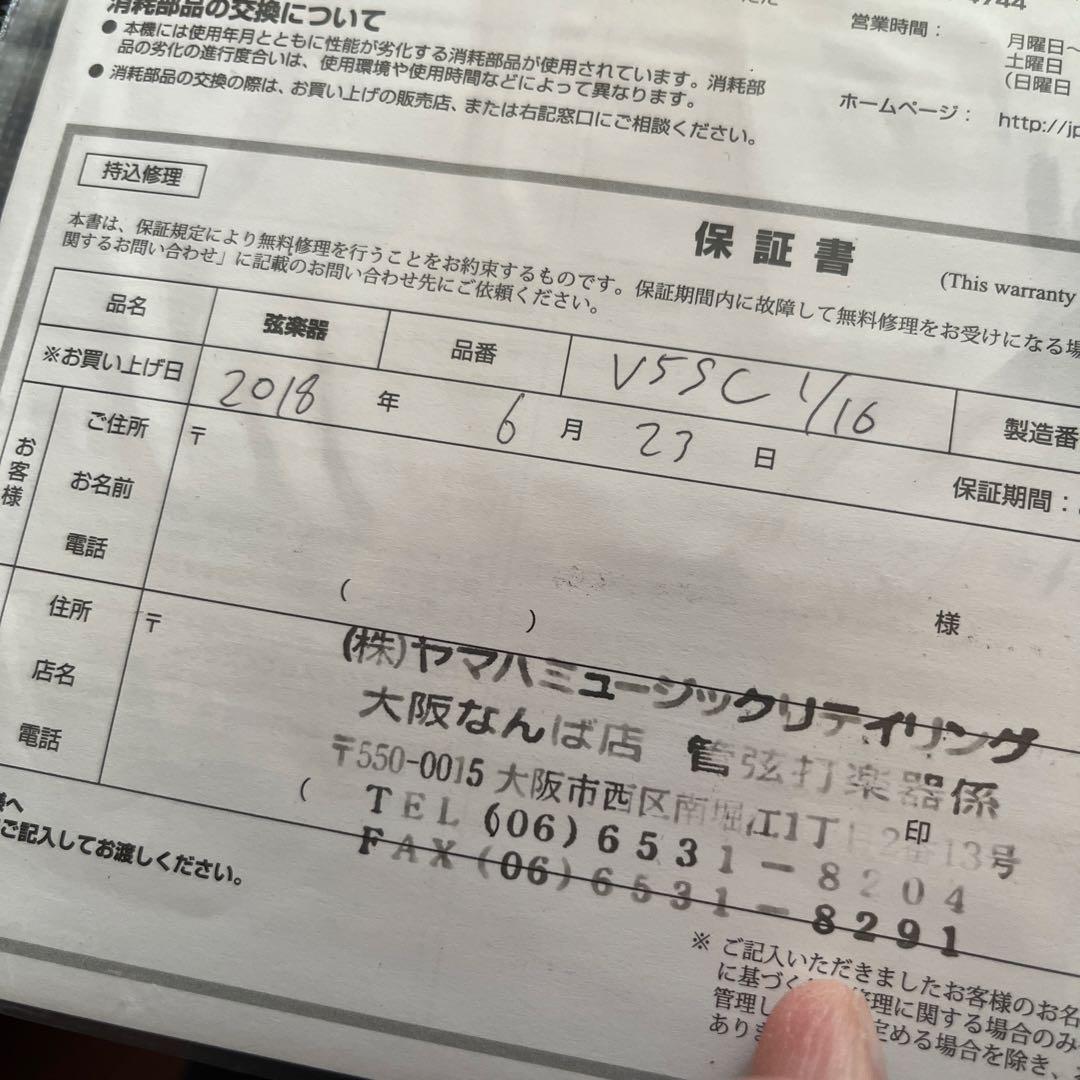 消耗部品の交換について
● 本機には使用年月とともに性能が劣化する消耗部品が使用されています。消耗部
品の劣化の進行度合いは、使用環境や使用時間などによって異なります。
● 消耗部品の交換の際は、お買い上げの販売店、または右記窓口にご相談ください。
営業時間：
月曜日～
土曜日
（日曜日
ホームページ：
http://jp
持込修理
保証書
(This warranty
本書は、保証規定により無料修理を行うことをお約束するものです。保証期間内に故障して無料修理をお受けになる場
関するお問い合わせ」に記載のお問い合わせ先にご依頼ください。
品名
弦楽器
品番
V5SC 1/16
製造番
※お買い上げ日
2018 年 6 月 23 日
保証期間：
お客様
ご住所
〒
お名前
電話
様
( )
住所
〒
店名
電話
(
(株)ヤマハミュージックリテイリング
大阪なんば店 管弦打楽器係
〒550-0015 大阪市西区南堀江1丁目2番13号
印
TEL (06) 6531-8204
FAX (06) 6531-8291
ご記入してお渡しください。
※ ご記入いただきましたお客様のお名
に基づく 修理に関する場合のみ
管理し
あり 定める場合を除き、